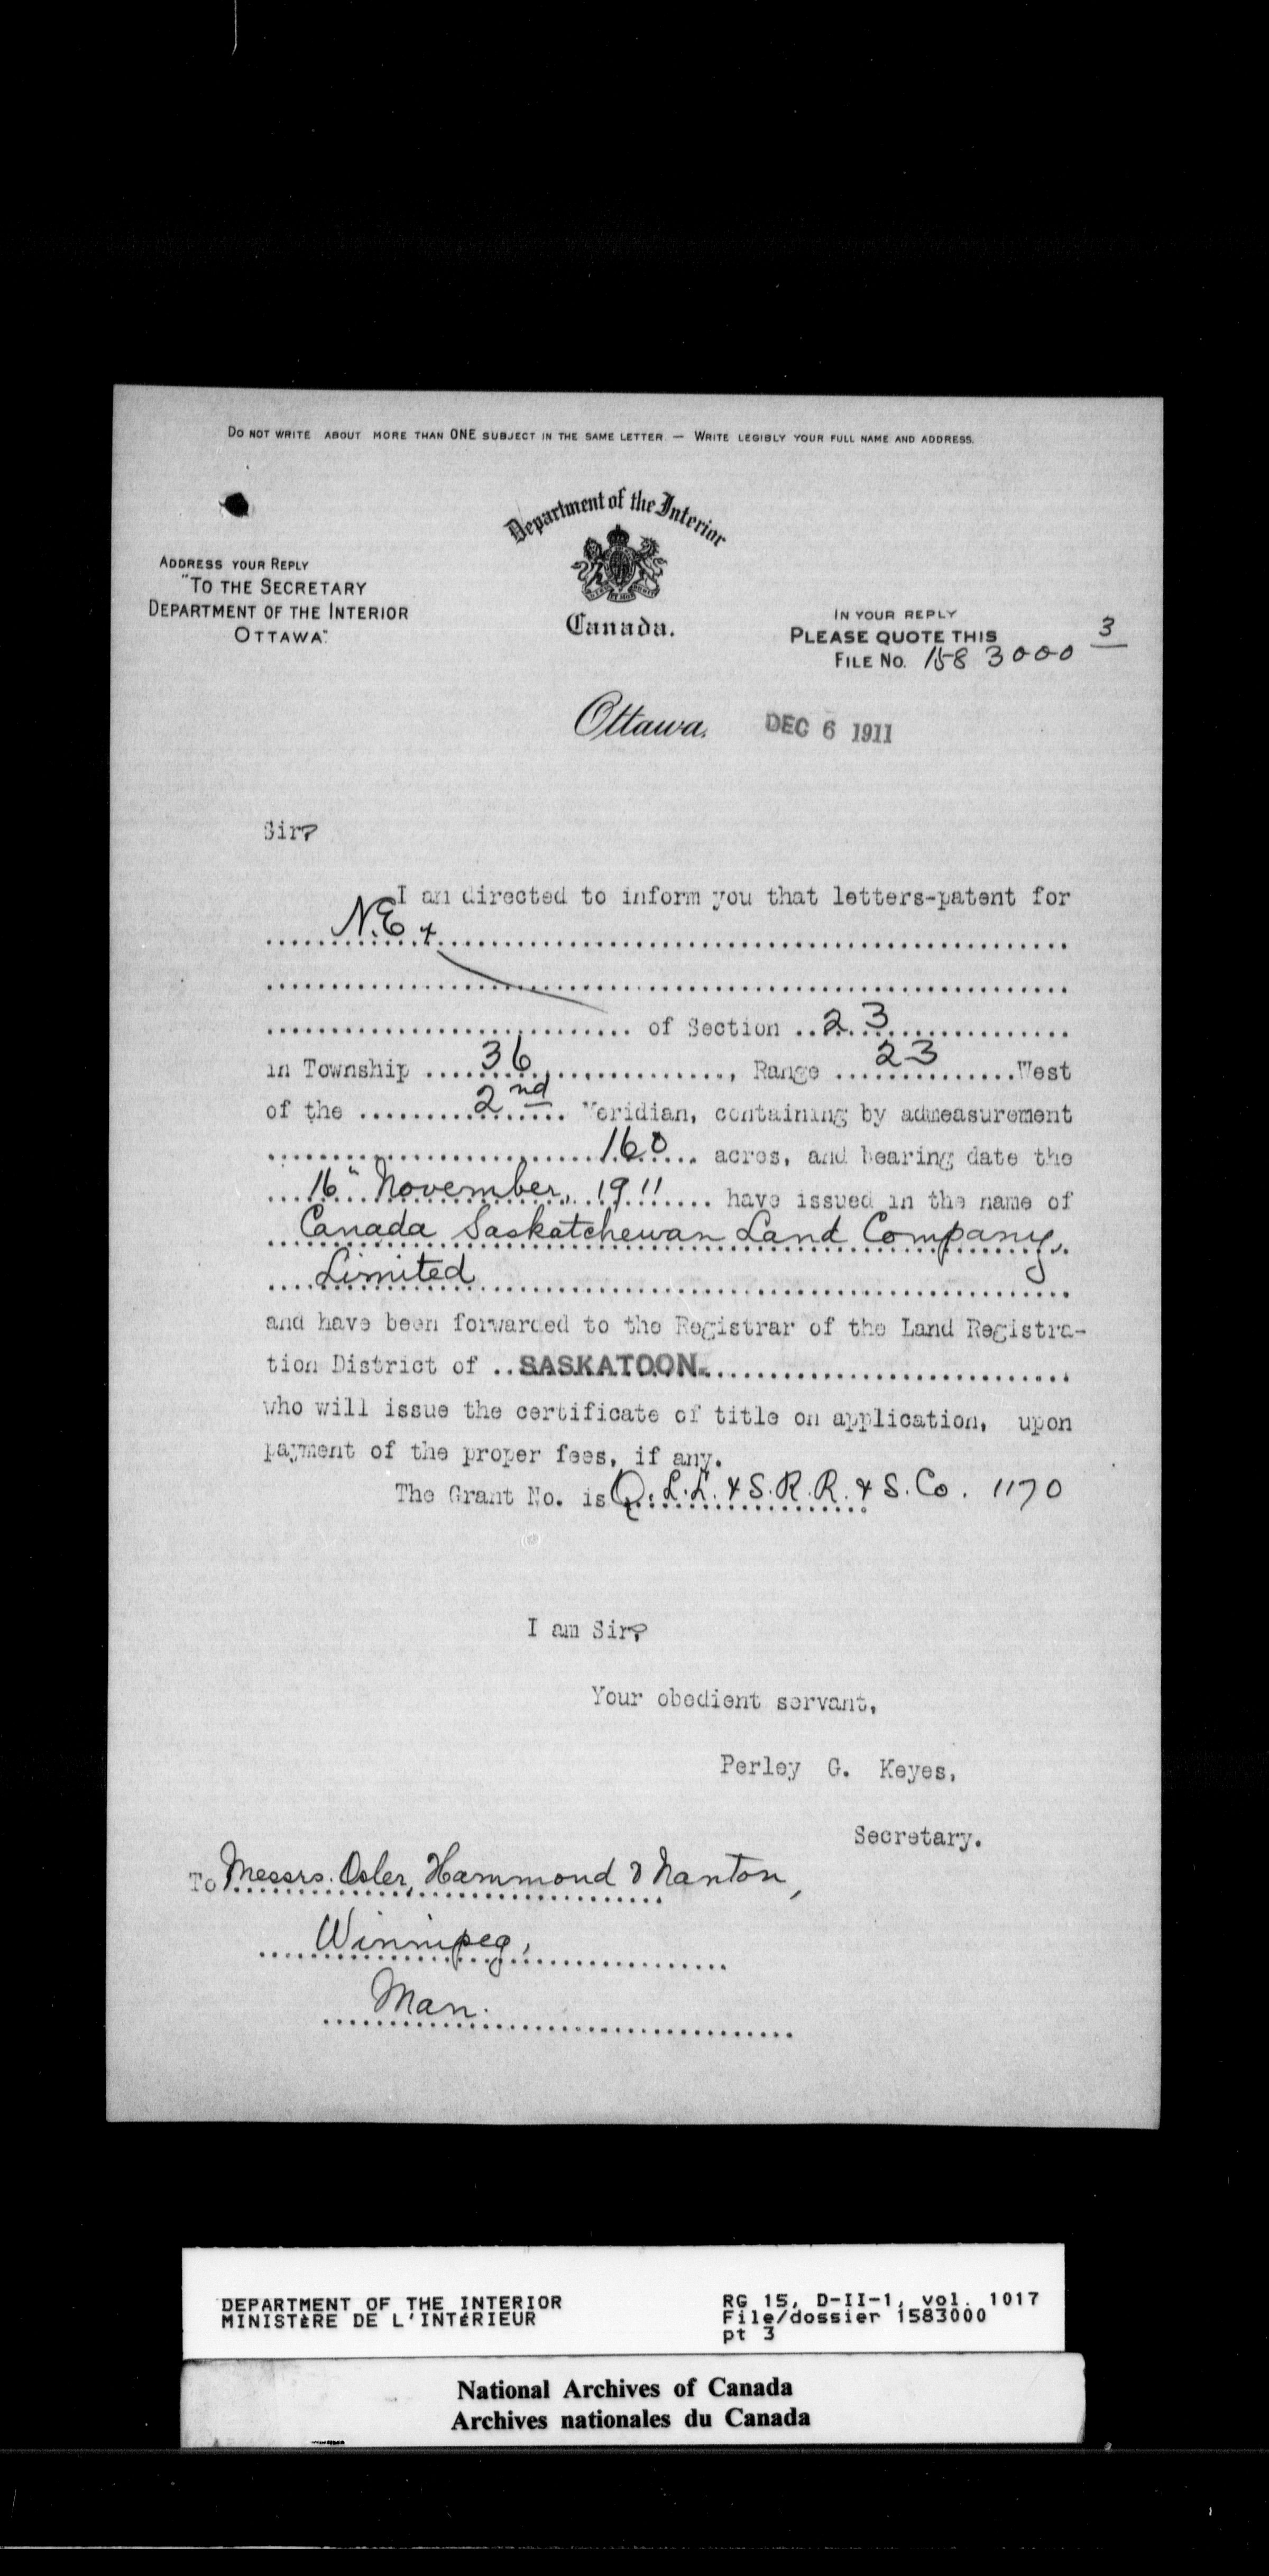 DO NOT WRITE ABOUT MORE THAN ONE SUBJECT IN THE SAME LETTER. — WRITE LEGIBLY YOUR FULL NAME AND ADDRESS.
Department of the Interior
Canada.
ADDRESS YOUR REPLY
"TO THE SECRETARY
DEPARTMENT OF THE INTERIOR
OTTAWA."
IN YOUR REPLY
PLEASE QUOTE THIS
FILE NO. 1583000 3
Ottawa, DEC 6 1911
Sir,
I am directed to inform you that letters-patent for
N.E. 4
of Section 23
in Township 36, Range 23 West
of the 2nd Meridian, containing by admeasurement
160 acres, and bearing date the
16" November, 1911 have issued in the name of
Canada Saskatchewan Land Company,
Limited
and have been forwarded to the Registrar of the Land Registra-
tion District of ..SASKATOON.
who will issue the certificate of title on application, upon
payment of the proper fees, if any.
The Grant No. is Q. L. L. & S. R. R. & S. Co. 1170
I am Sir,
Your obedient servant,
Perley G. Keyes,
Secretary.
To Messrs. Osler, Hammond & Nanton,
Winnipeg,
Man.
DEPARTMENT OF THE INTERIOR
MINISTÈRE DE L'INTÉRIEUR
RG 15, D-II-1, vol. 1017
File/dossier 1583000
pt 3
National Archives of Canada
Archives nationales du Canada